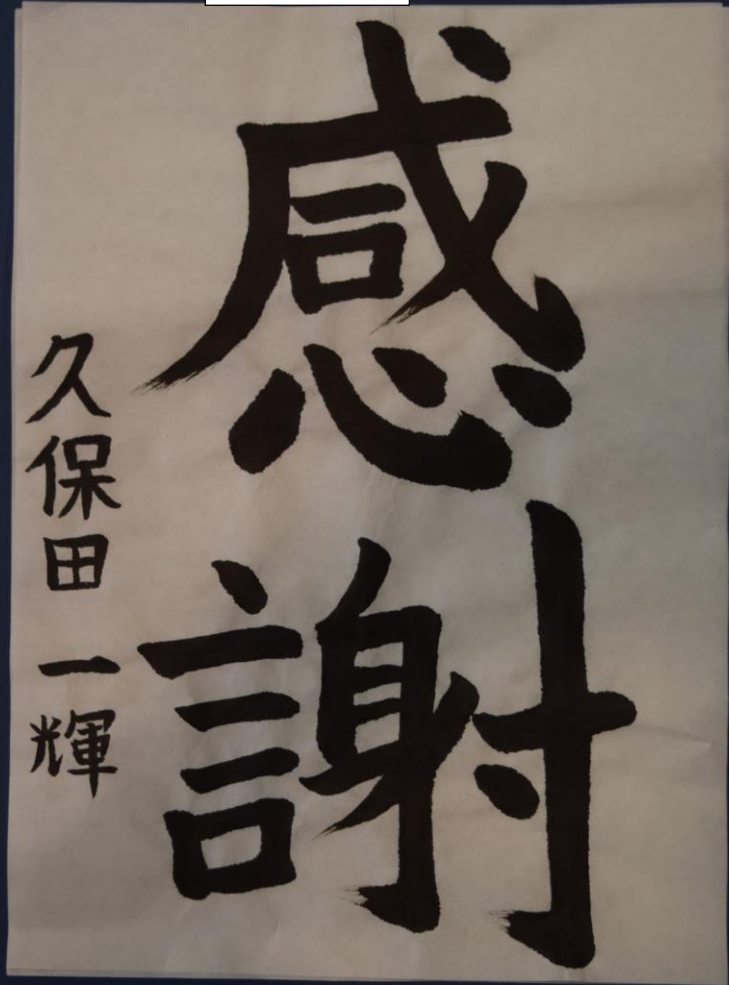 感謝
久保田 一輝